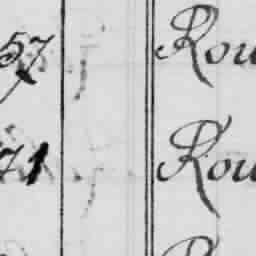 57 Rou
71 Rou